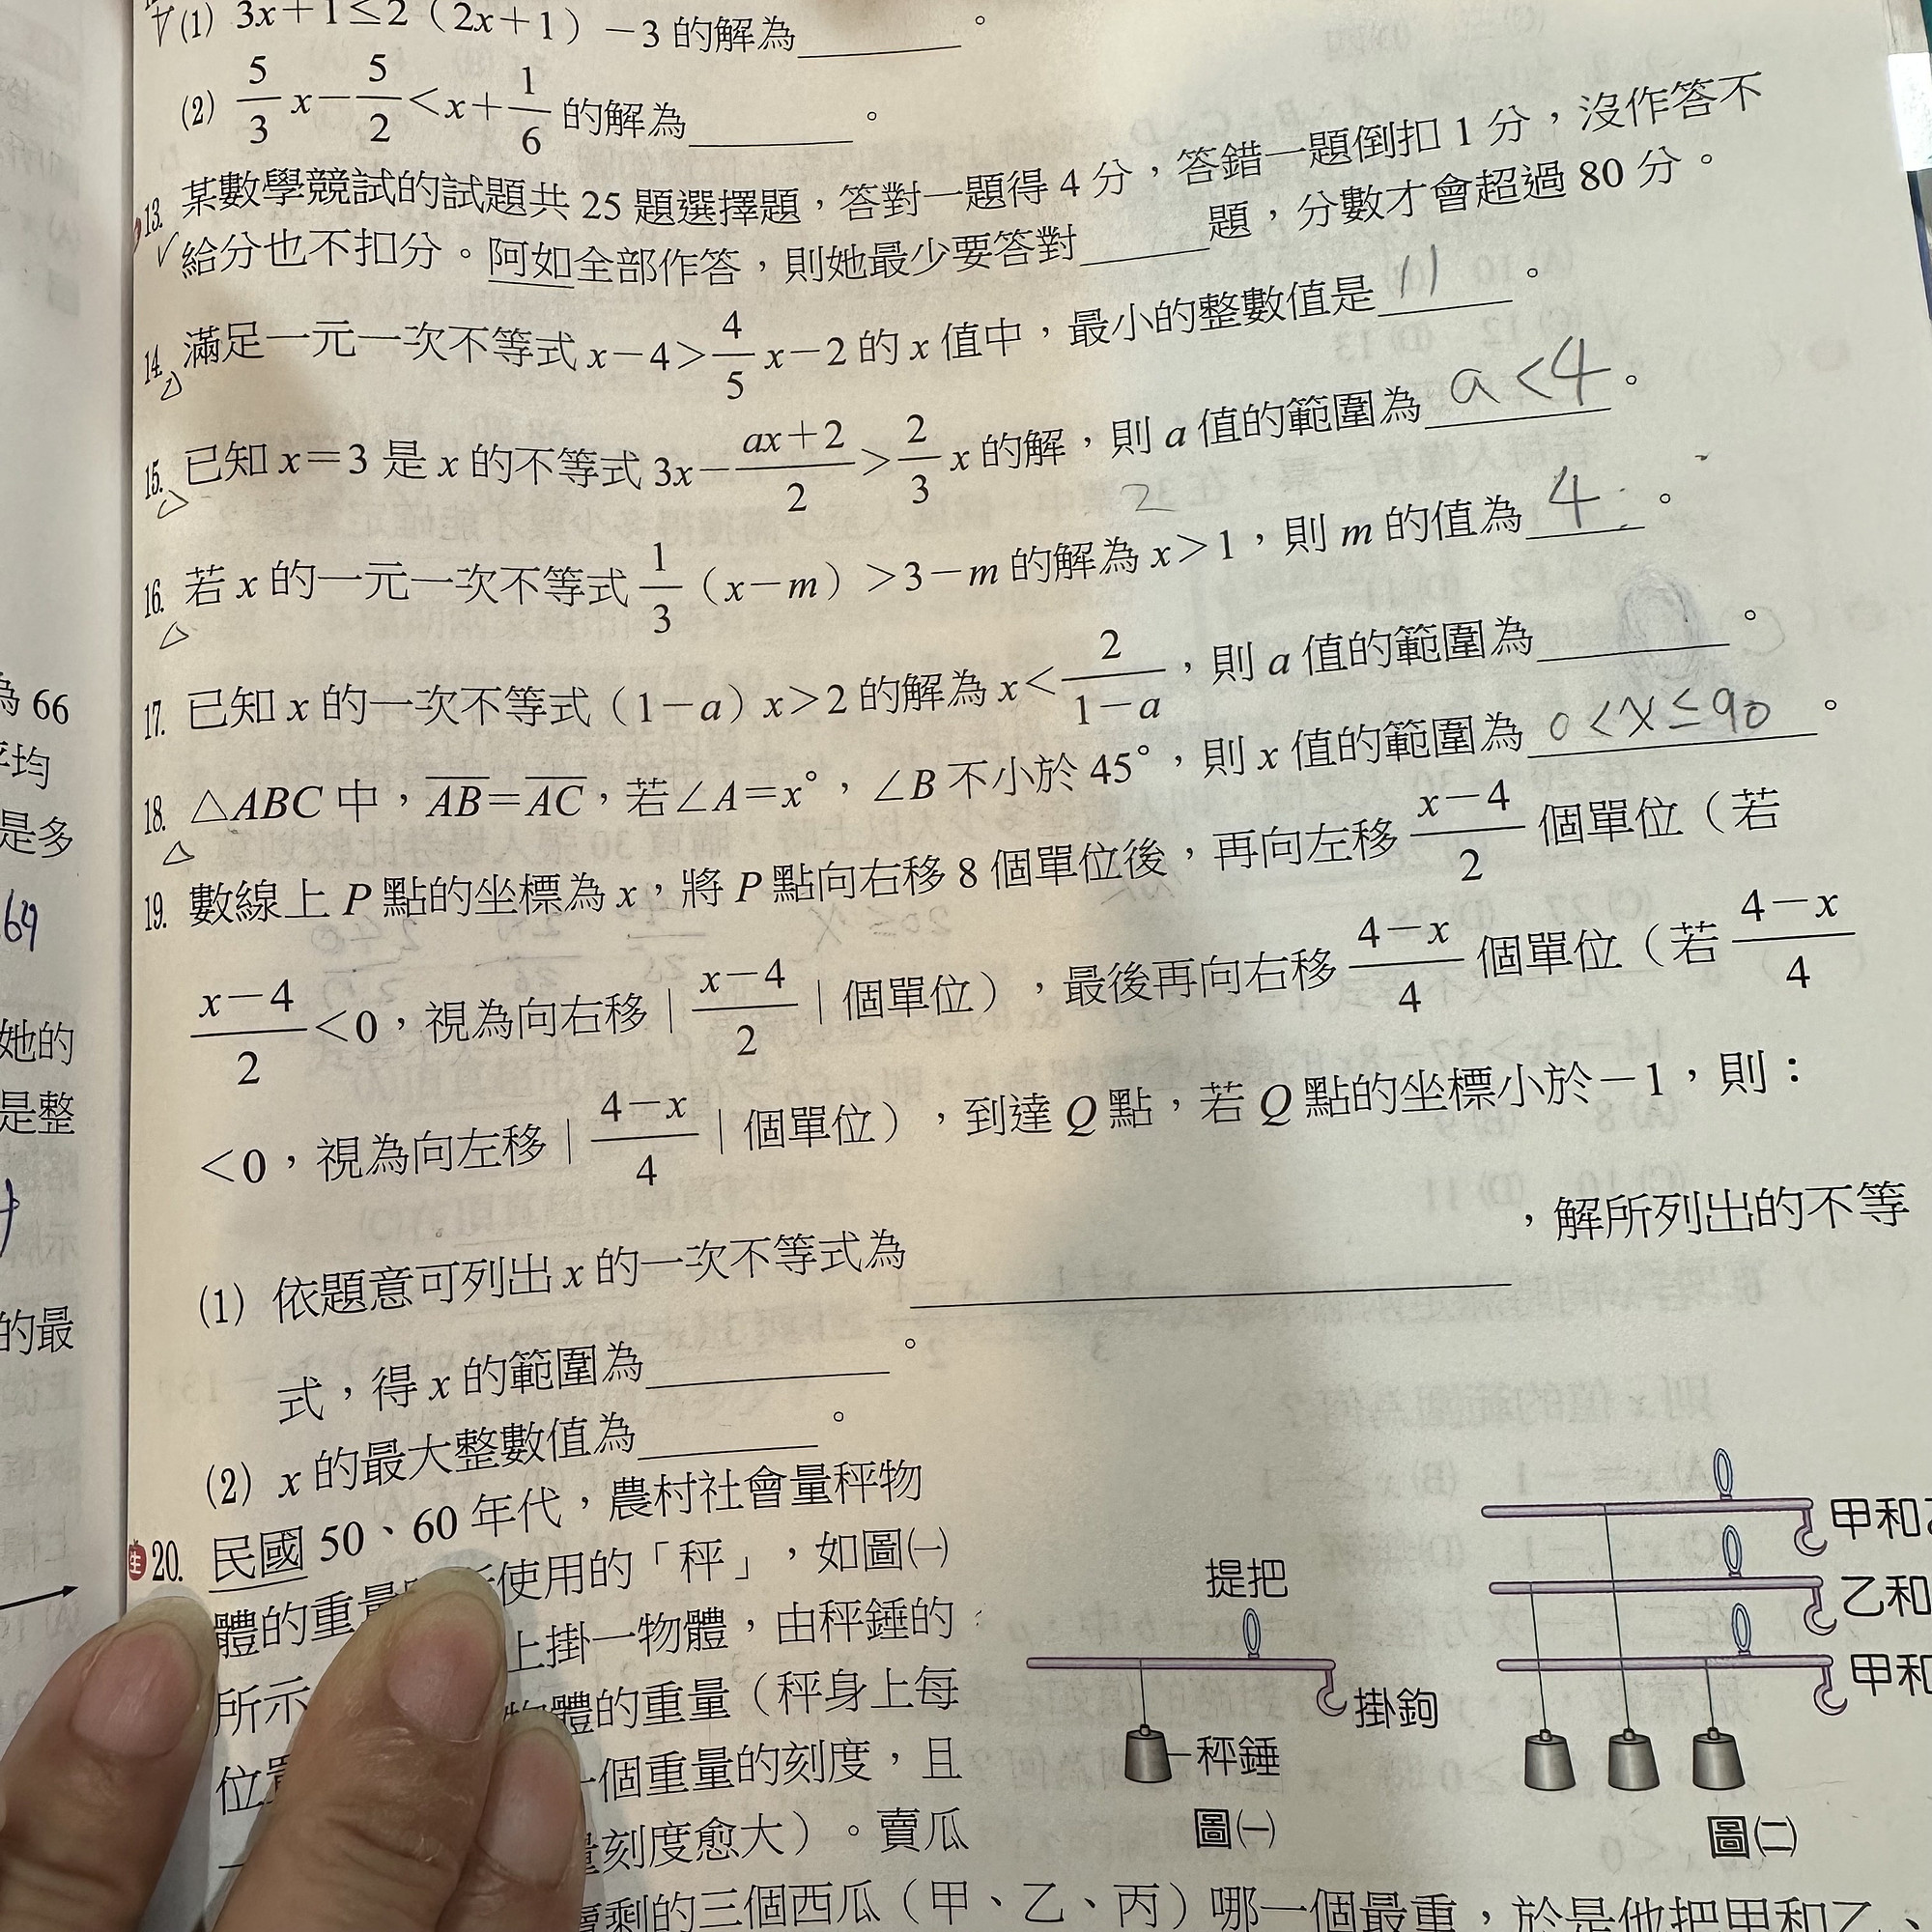 (1) 3x+1≤2（2x+1）−3 的解為______。
(2) 5/3 x−5/2<x+1/6 的解為______。
13. 某數學競試的試題共 25 題選擇題，答對一題得 4 分，答錯一題倒扣 1 分，沒作答不
給分也不扣分。阿如全部作答，則她最少要答對______題，分數才會超過 80 分。
14. 滿足一元一次不等式 x−4>4/5 x−2 的 x 值中，最小的整數值是 11 。
15. 已知 x=3 是 x 的不等式 3x−(ax+2)/2>2/3 x 的解，則 a 值的範圍為 a<4 。
2
16. 若 x 的一元一次不等式 1/3（x−m）>3−m 的解為 x>1，則 m 的值為 4 。
17. 已知 x 的一次不等式（1−a）x>2 的解為 x<2/(1−a)，則 a 值的範圍為______。
18. △ABC 中，AB=AC，若∠A=x°，∠B 不小於 45°，則 x 值的範圍為 0<x≤90 。
19. 數線上 P 點的坐標為 x，將 P 點向右移 8 個單位後，再向左移 (x−4)/2 個單位（若
(x−4)/2<0，視為向右移 | (x−4)/2 | 個單位），最後再向右移 (4−x)/4 個單位（若 (4−x)/4
<0，視為向左移 | (4−x)/4 | 個單位），到達 Q 點，若 Q 點的坐標小於−1，則：
(1) 依題意可列出 x 的一次不等式為______，解所列出的不等
式，得 x 的範圍為______。
(2) x 的最大整數值為______。
生 20. 民國 50、60 年代，農村社會量秤物
體的重量 使用的「秤」，如圖㈠
所示 上掛一物體，由秤錘的
位置 物體的重量（秤身上每
一個重量的刻度，且
刻度愈大）。賣瓜
剩的三個西瓜（甲、乙、丙）哪一個最重，於是他把甲和乙、
提把
掛鉤
秤錘
圖㈠
甲和乙
乙和
甲和
圖㈡
為 66
平均
是多
69
她的
是整
的最